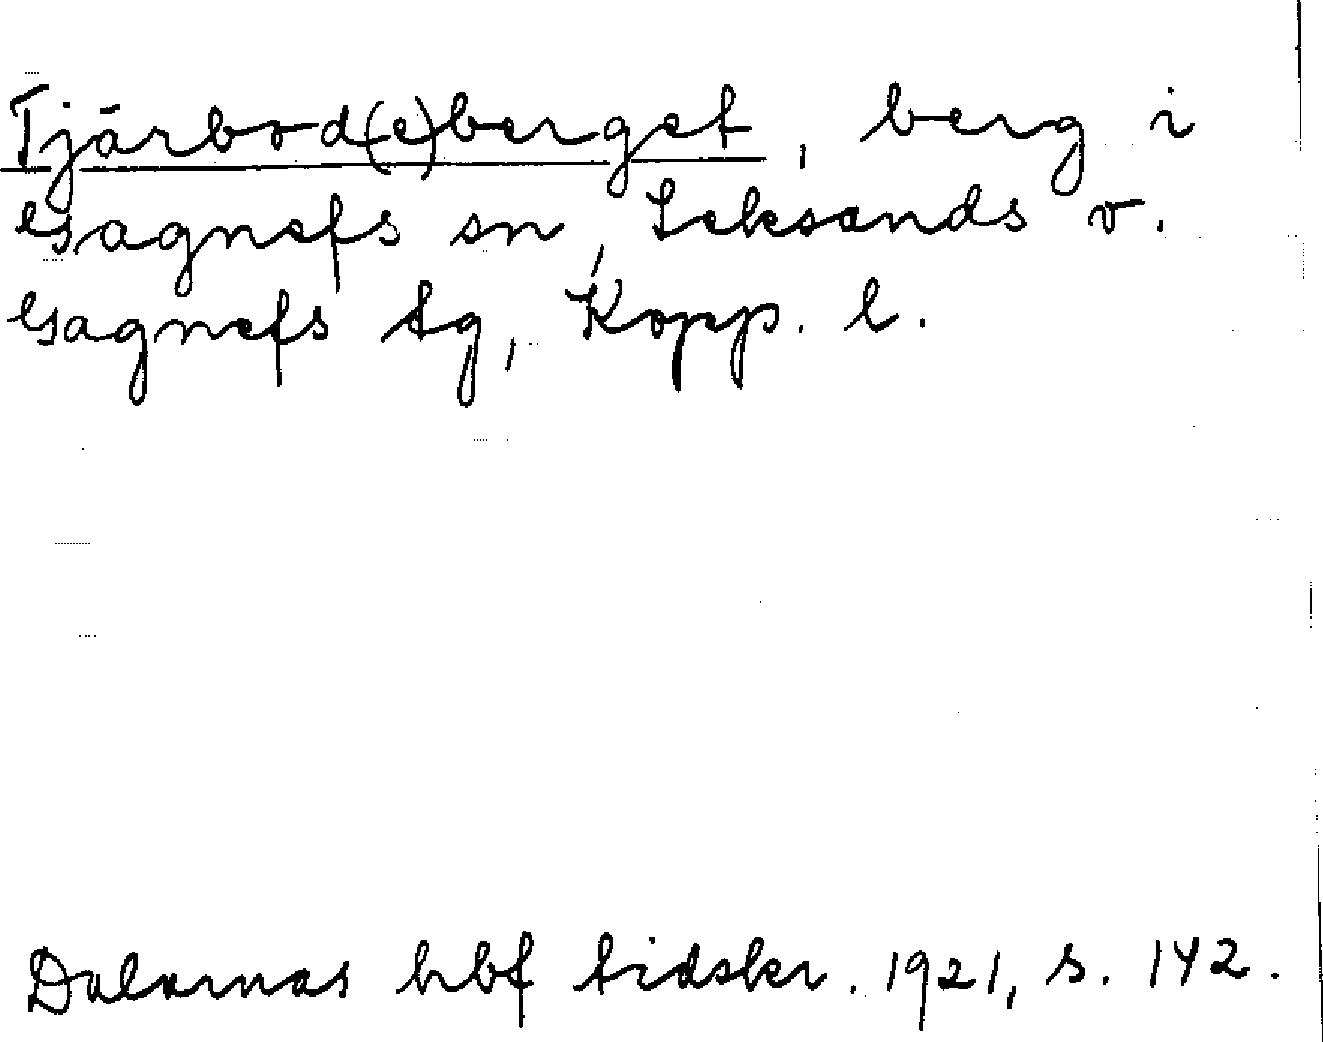 Tjärbod(e)berget, berg i
Gagnefs sn, Leksands o.
Gagnefs tg, Kopp. l.
Dalarnas hbf tidskr. 1921, s. 142.